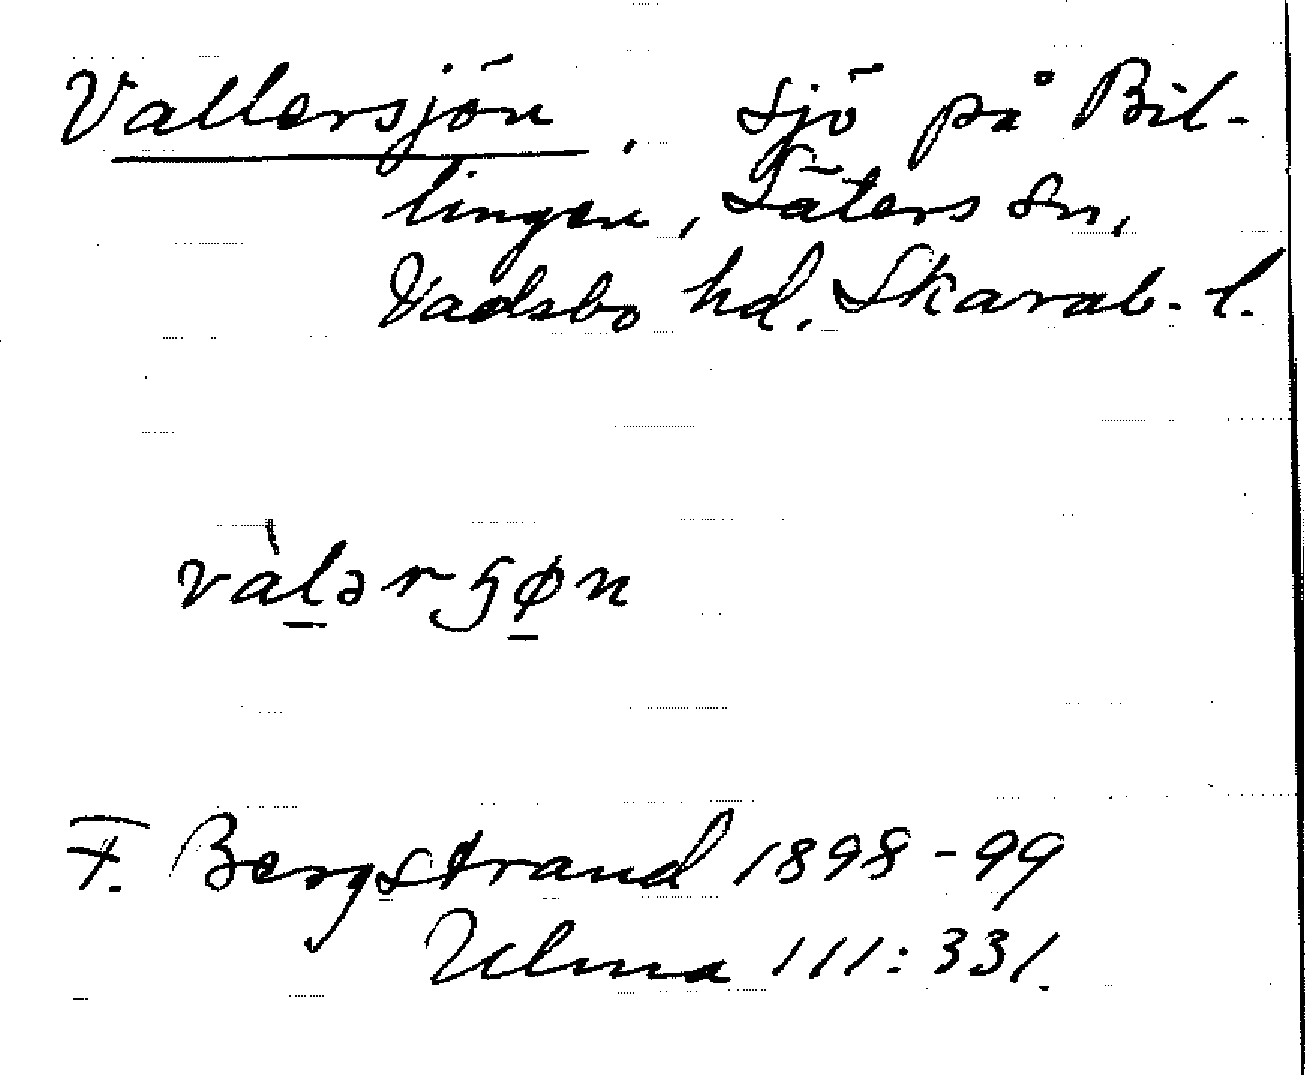 Vallersjön. Sjö på Bil-
lingen, Säters sn,
Vadsbo hd. Skarab. l.
vàlərʃøn
F. Bergstrand 1898-99
Ulma 111:331.